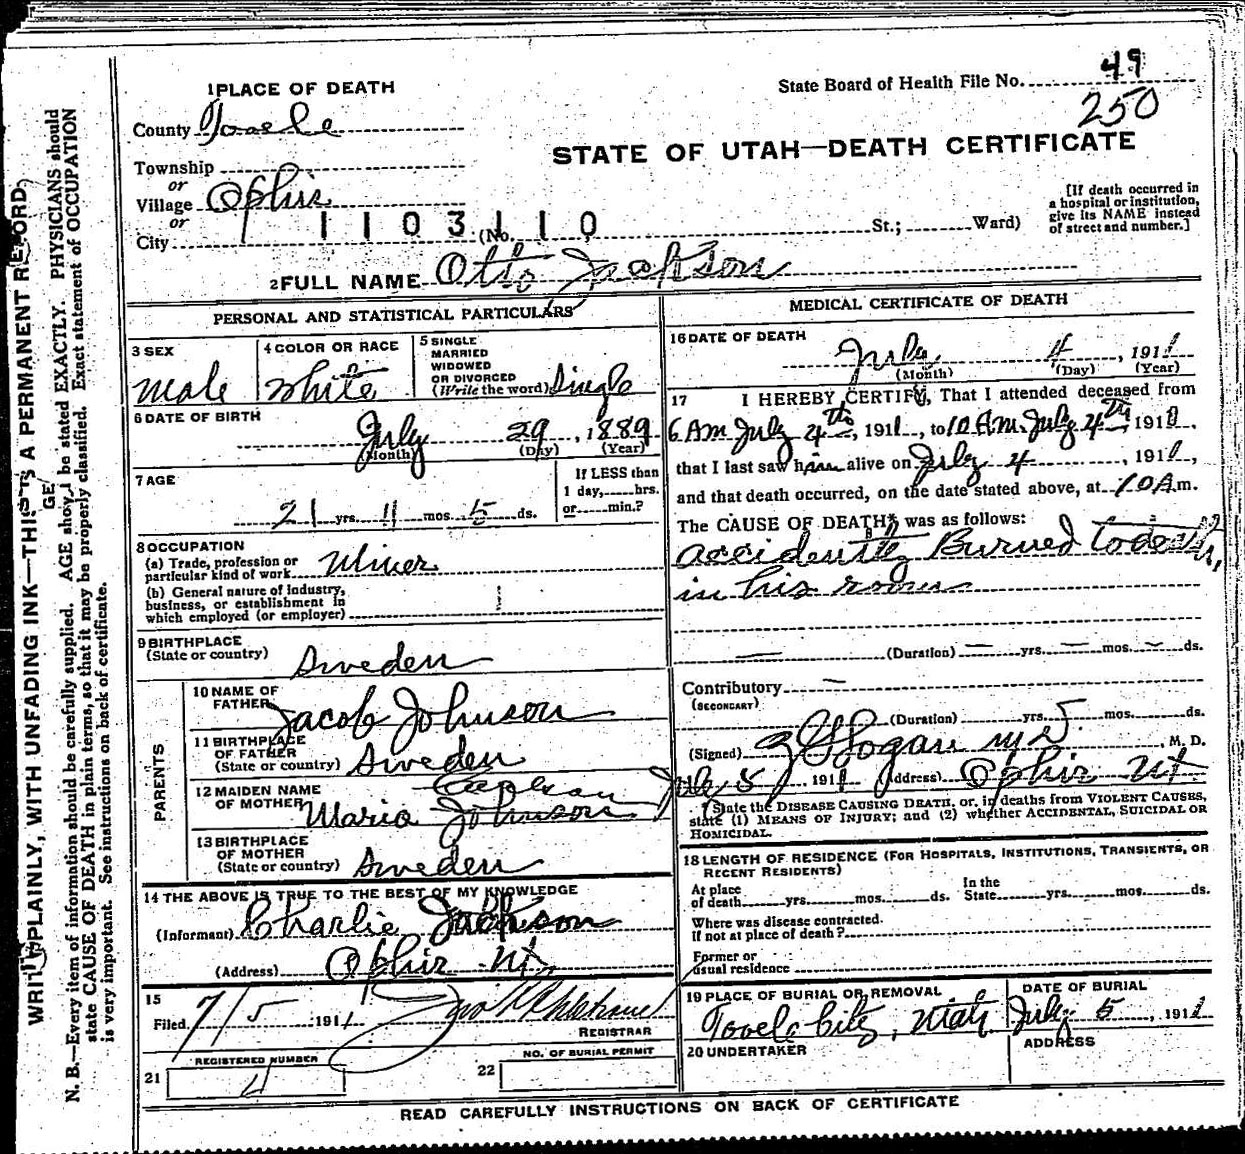 49
1 PLACE OF DEATH
State Board of Health File No.
250
County Tooele
STATE OF UTAH—DEATH CERTIFICATE
Township
or
Village Ophir
or
City
1103110
(No. St.; Ward)
[If death occurred in
a hospital or institution,
give its NAME instead
of street and number.]
2 FULL NAME Otto Jackson
PERSONAL AND STATISTICAL PARTICULARS
3 SEX
Male
4 COLOR OR RACE
White
5 SINGLE
MARRIED
WIDOWED
OR DIVORCED
(Write the word) Single
6 DATE OF BIRTH
July 29, 1889
(Month) (Day) (Year)
7 AGE
21 yrs. 11 mos. 5 ds.
If LESS than
1 day, hrs.
or min.?
8 OCCUPATION
(a) Trade, profession or
particular kind of work Miner
(b) General nature of industry,
business, or establishment in
which employed (or employer)
9 BIRTHPLACE
(State or country) Sweden
PARENTS
10 NAME OF
FATHER Jacob Johnson
11 BIRTHPLACE
OF FATHER
(State or country) Sweden
12 MAIDEN NAME
OF MOTHER Maria Johnson
13 BIRTHPLACE
OF MOTHER
(State or country) Sweden
14 THE ABOVE IS TRUE TO THE BEST OF MY KNOWLEDGE
(Informant) Charlie Jackson
(Address) Ophir Ut.
15
Filed 7/5 1911
REGISTRAR
REGISTERED NUMBER
21 4
NO. OF BURIAL PERMIT
22
MEDICAL CERTIFICATE OF DEATH
16 DATE OF DEATH
July 4, 1911
(Month) (Day) (Year)
17 I HEREBY CERTIFY, That I attended deceased from
6 AM July 4th, 1911, to 10 A.M. July 4th, 1911,
that I last saw him alive on July 4, 1911,
and that death occurred, on the date stated above, at 10 A m.
The CAUSE OF DEATH* was as follows:
accidently Burned to death,
in his room
(Duration) yrs. mos. ds.
Contributory
(SECONDARY)
(Duration) yrs. mos. ds.
(Signed) Hogan MD, M. D.
July 5 1911 (Address) Ophir Ut.
*State the DISEASE CAUSING DEATH, or, in deaths from VIOLENT CAUSES,
state (1) MEANS OF INJURY; and (2) whether ACCIDENTAL, SUICIDAL OR
HOMICIDAL.
18 LENGTH OF RESIDENCE (FOR HOSPITALS, INSTITUTIONS, TRANSIENTS, OR
RECENT RESIDENTS)
At place
of death yrs. mos. ds.
In the
State yrs. mos. ds.
Where was disease contracted.
If not at place of death?
Former or
usual residence
19 PLACE OF BURIAL OR REMOVAL
Tooele City, Utah
DATE OF BURIAL
July 5, 1911
20 UNDERTAKER
ADDRESS
READ CAREFULLY INSTRUCTIONS ON BACK OF CERTIFICATE
WRITE PLAINLY, WITH UNFADING INK—THIS IS A PERMANENT RECORD.
N. B.—Every item of information should be carefully supplied. AGE should be stated EXACTLY. PHYSICIANS should
state CAUSE OF DEATH in plain terms, so that it may be properly classified. Exact statement of OCCUPATION
is very important. See instructions on back of certificate.